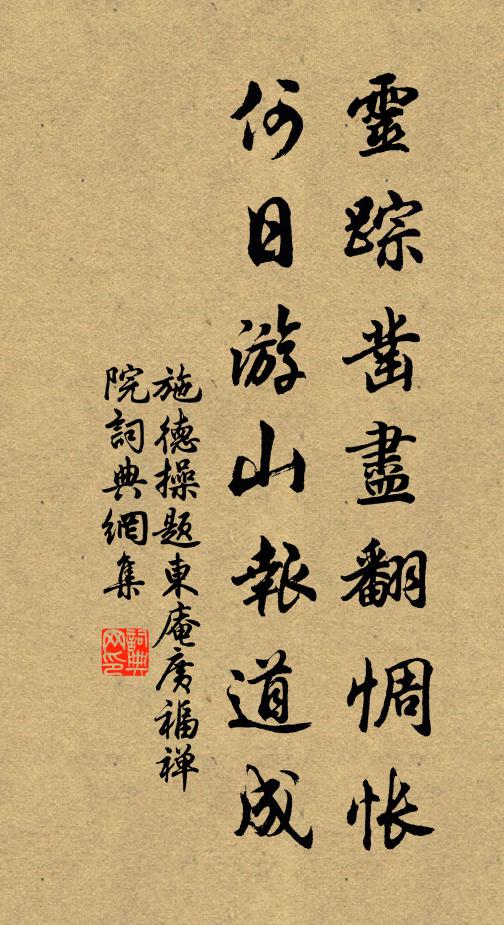 靈踪凿盡翻惆怅
何日游山報道成
施德操题東庵廣福禅
院詞典網集
詞典網印